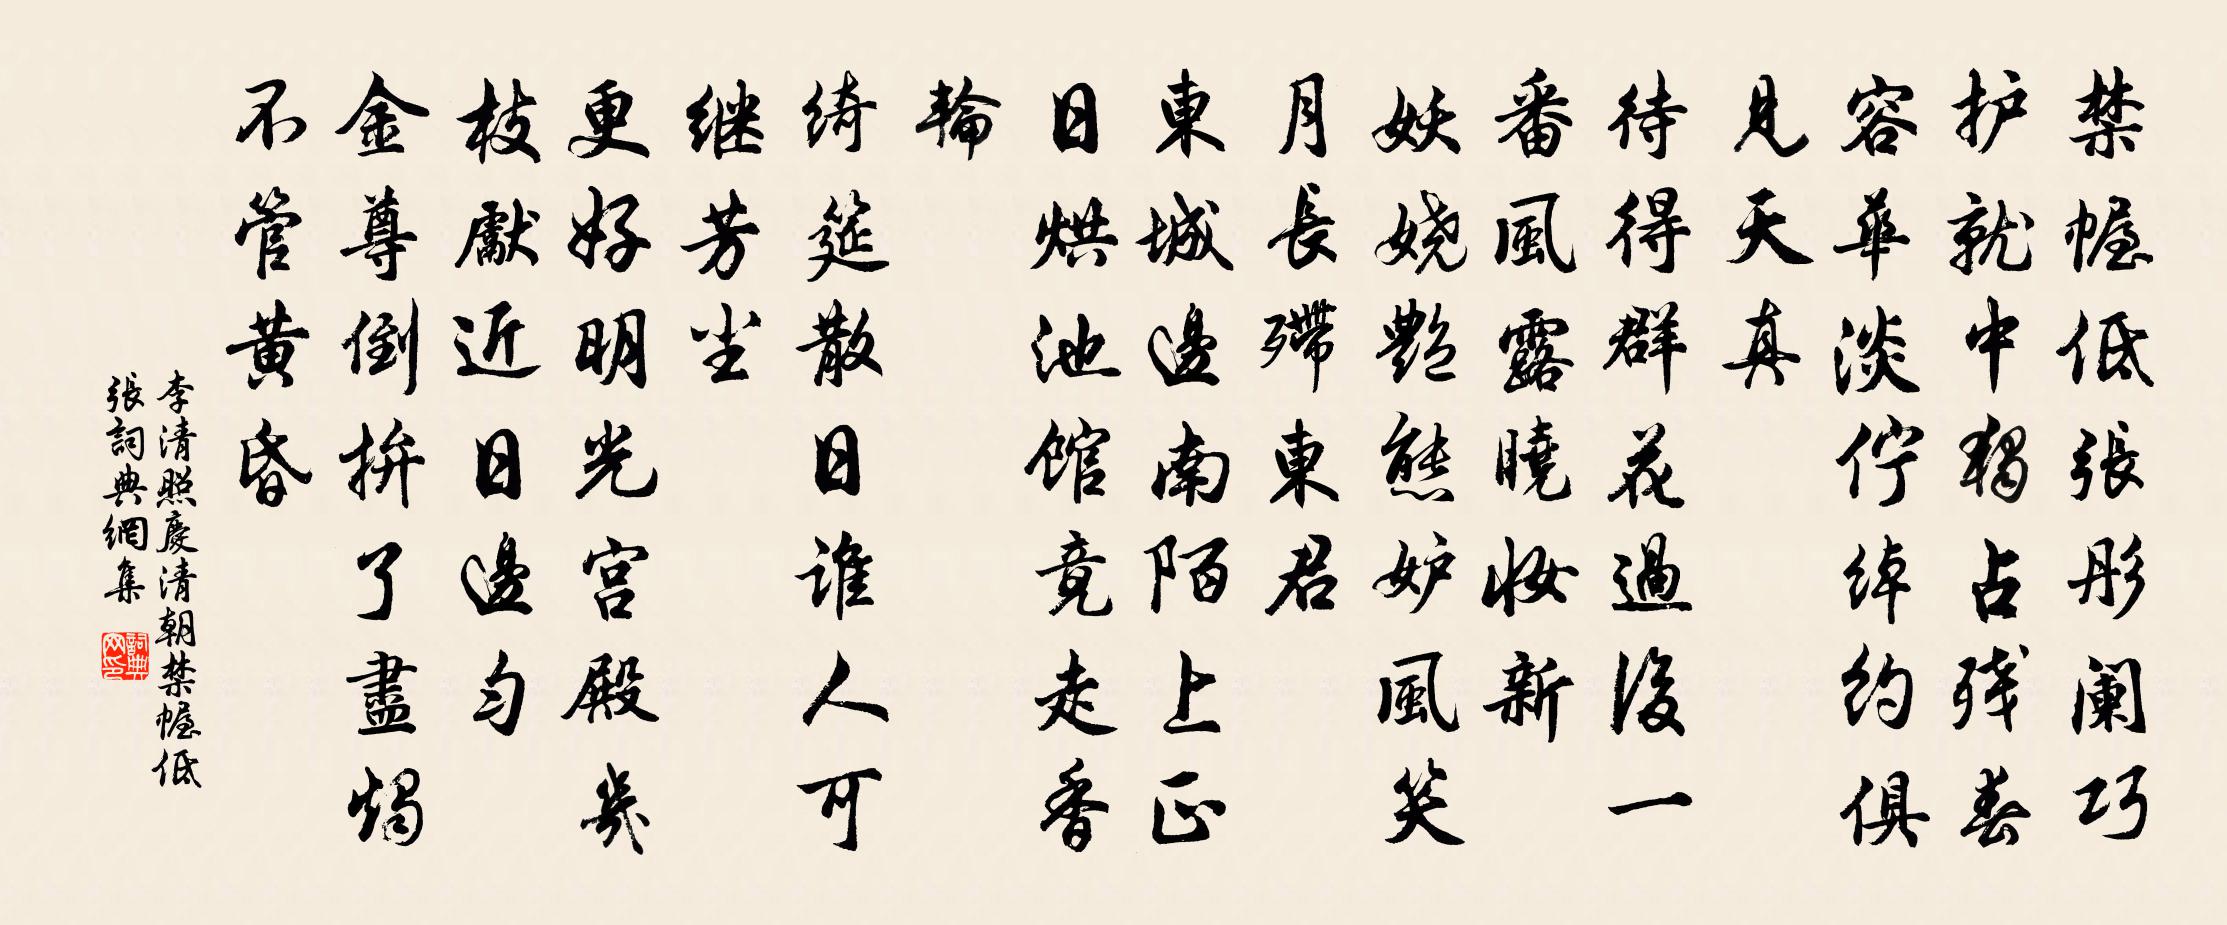 禁幄低張彤阑巧
护就中獨占残春
容華淡佇绰约俱
見天真
待得群花過後一
番風露曉妆新
妖娆艷態妒風笑
月長殢東君
東城邊南陌上正
日烘池馆竟走香
輪
绮筵散日誰人可
继芳尘
更好明光宫殿幾
枝獻近日邊匀
金尊倒拚了盡燭
不管黄昏
李清照慶清朝禁幄低
張詞典網集
詞典网印